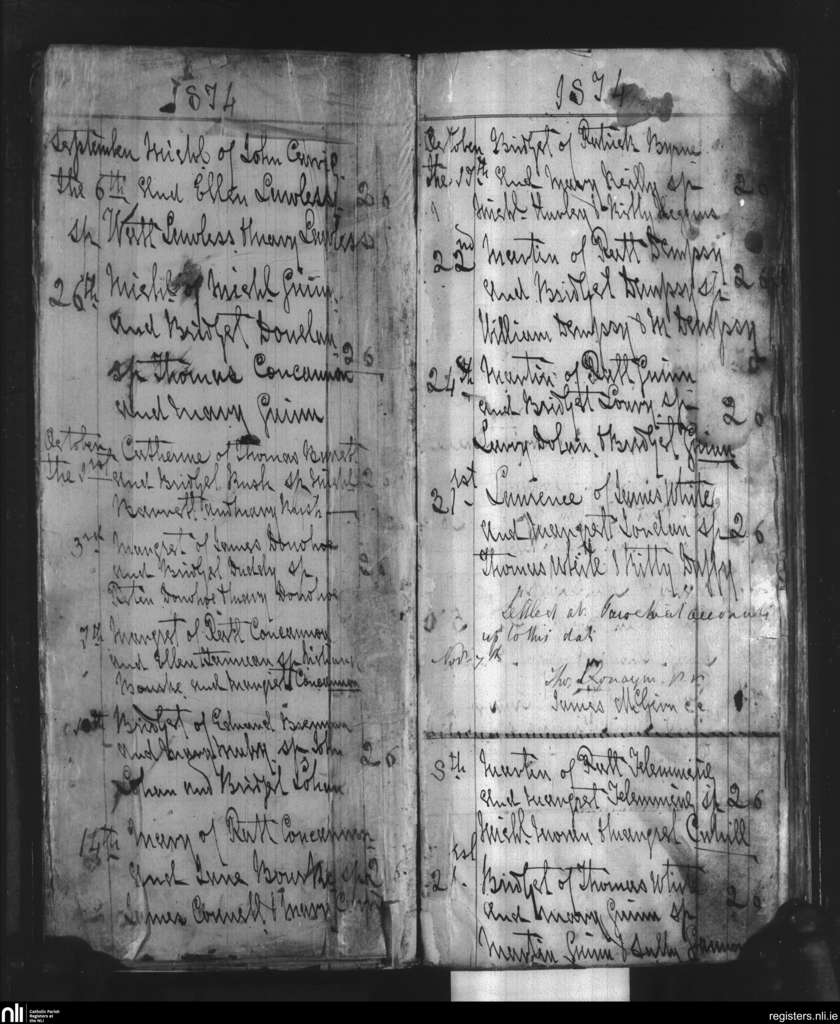 1874
September Michl of John
the 6th and Ellen Lawless 2 6
sp Watt Lawless & Mary Lawless
26th Michl of Michl Guinn
and Bridget Donelan
sp Thomas Concannon 2 6
and Mary Guinn
October Catherine of Thomas
the 1st and Bridget Rush sp Michl 2
and Mary Rush
3rd Margret of James Donohoe
and Bridget sp 2 6
Donohoe & Mary Donohoe
7th Margret of Patt Concannon
and Ellen sp
Bourke and Margret Concannon
Bridget of Edmund Brennan
and Mary sp John 2 6
and Bridget
14th Mary of Patt Concannon
and Bourke sp 2
James & Mary
1874
October Bridget of Patrick Byrne
the 17th and Mary Reilly sp 2 6
Michl Hurley & Kitty Higgins
22nd Martin of Patt Dempsy
and Bridget Dempsy sp 2 6
William Dempsy & M Dempsy
24th Martin of Patt Guinn
and Bridget Lowry sp 2 0
Larry Dolan & Bridget Guinn
31st Laurence of White
and Margret sp 2 6
Thomas White & Kitty Duffy
Settled at Parochial accounts
up to this dat
Novr 7th
Thos Ronayne P.P.
James McGirn cc
8th Martin of Patt
and Margret sp 2 6
Michl & Margret
21st Bridget of Thomas White
and Mary Guinn sp 2 0
Martin Guinn & Sally
nli
Catholic Parish
Registers at
the NLI
registers.nli.ie